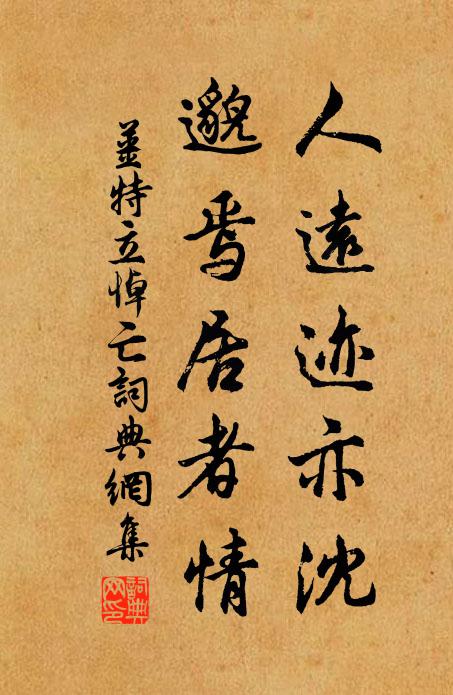 人遠迹亦沈
邈焉居者情
姜特立悼亡詞典網集
詞典網印